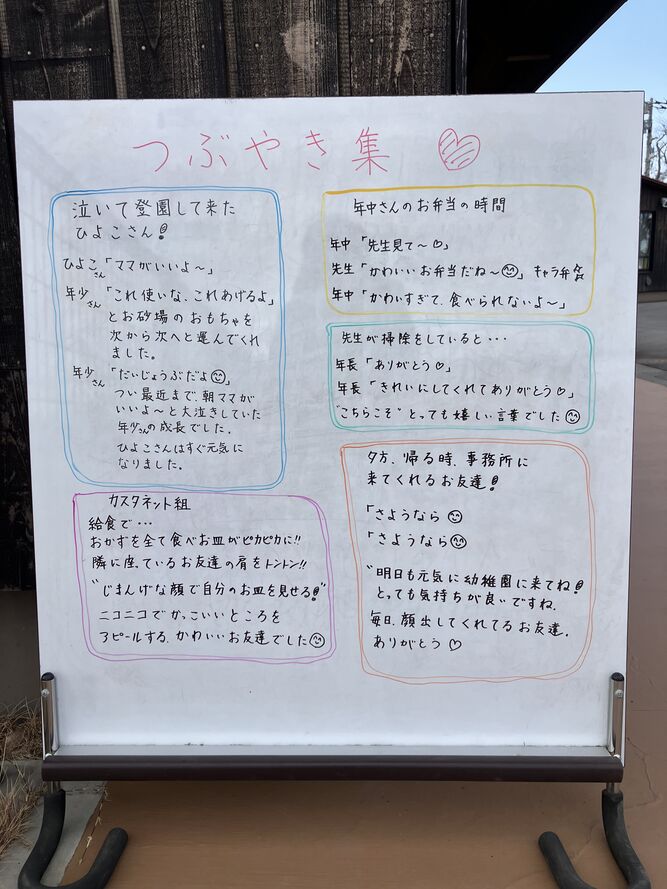 つぶやき集 ♡
泣いて登園して来た
ひよこさん!
ひよこさん「ママがいいよ～」
年少さん「これ使いな、これあげるよ」
とお砂場のおもちゃを
次から次へと運んでくれ
ました。
年少さん「だいじょうぶだよ😊」
つい最近まで、朝ママが
いいよ～と大泣きしていた
年少さんの成長でした。
ひよこさんはすぐ元気に
なりました。
カスタネット組
給食で・・・
おかずを全て食べお皿がピカピカに!!
隣に座っているお友達の肩をトントン!!
"じまんげな顔で自分のお皿を見せる!"
ニコニコでかっこいいところを
アピールする、かわいいお友達でした😊
年中さんのお弁当の時間
年中「先生見て～♡」
先生「かわいいお弁当だね～😊」キャラ弁
年中「かわいすぎて、食べられないよ～」
先生が掃除をしていると・・・
年長「ありがとう♡」
年長「きれいにしてくれてありがとう♡」
"こちらこそ"とっても嬉しい言葉でした😊
夕方、帰る時、事務所に
来てくれるお友達!
「さようなら😊
「さようなら😊
"明日も元気に幼稚園に来てね!
とっても気持ちが良いですね。
毎日、顔出してくれてるお友達。
ありがとう♡